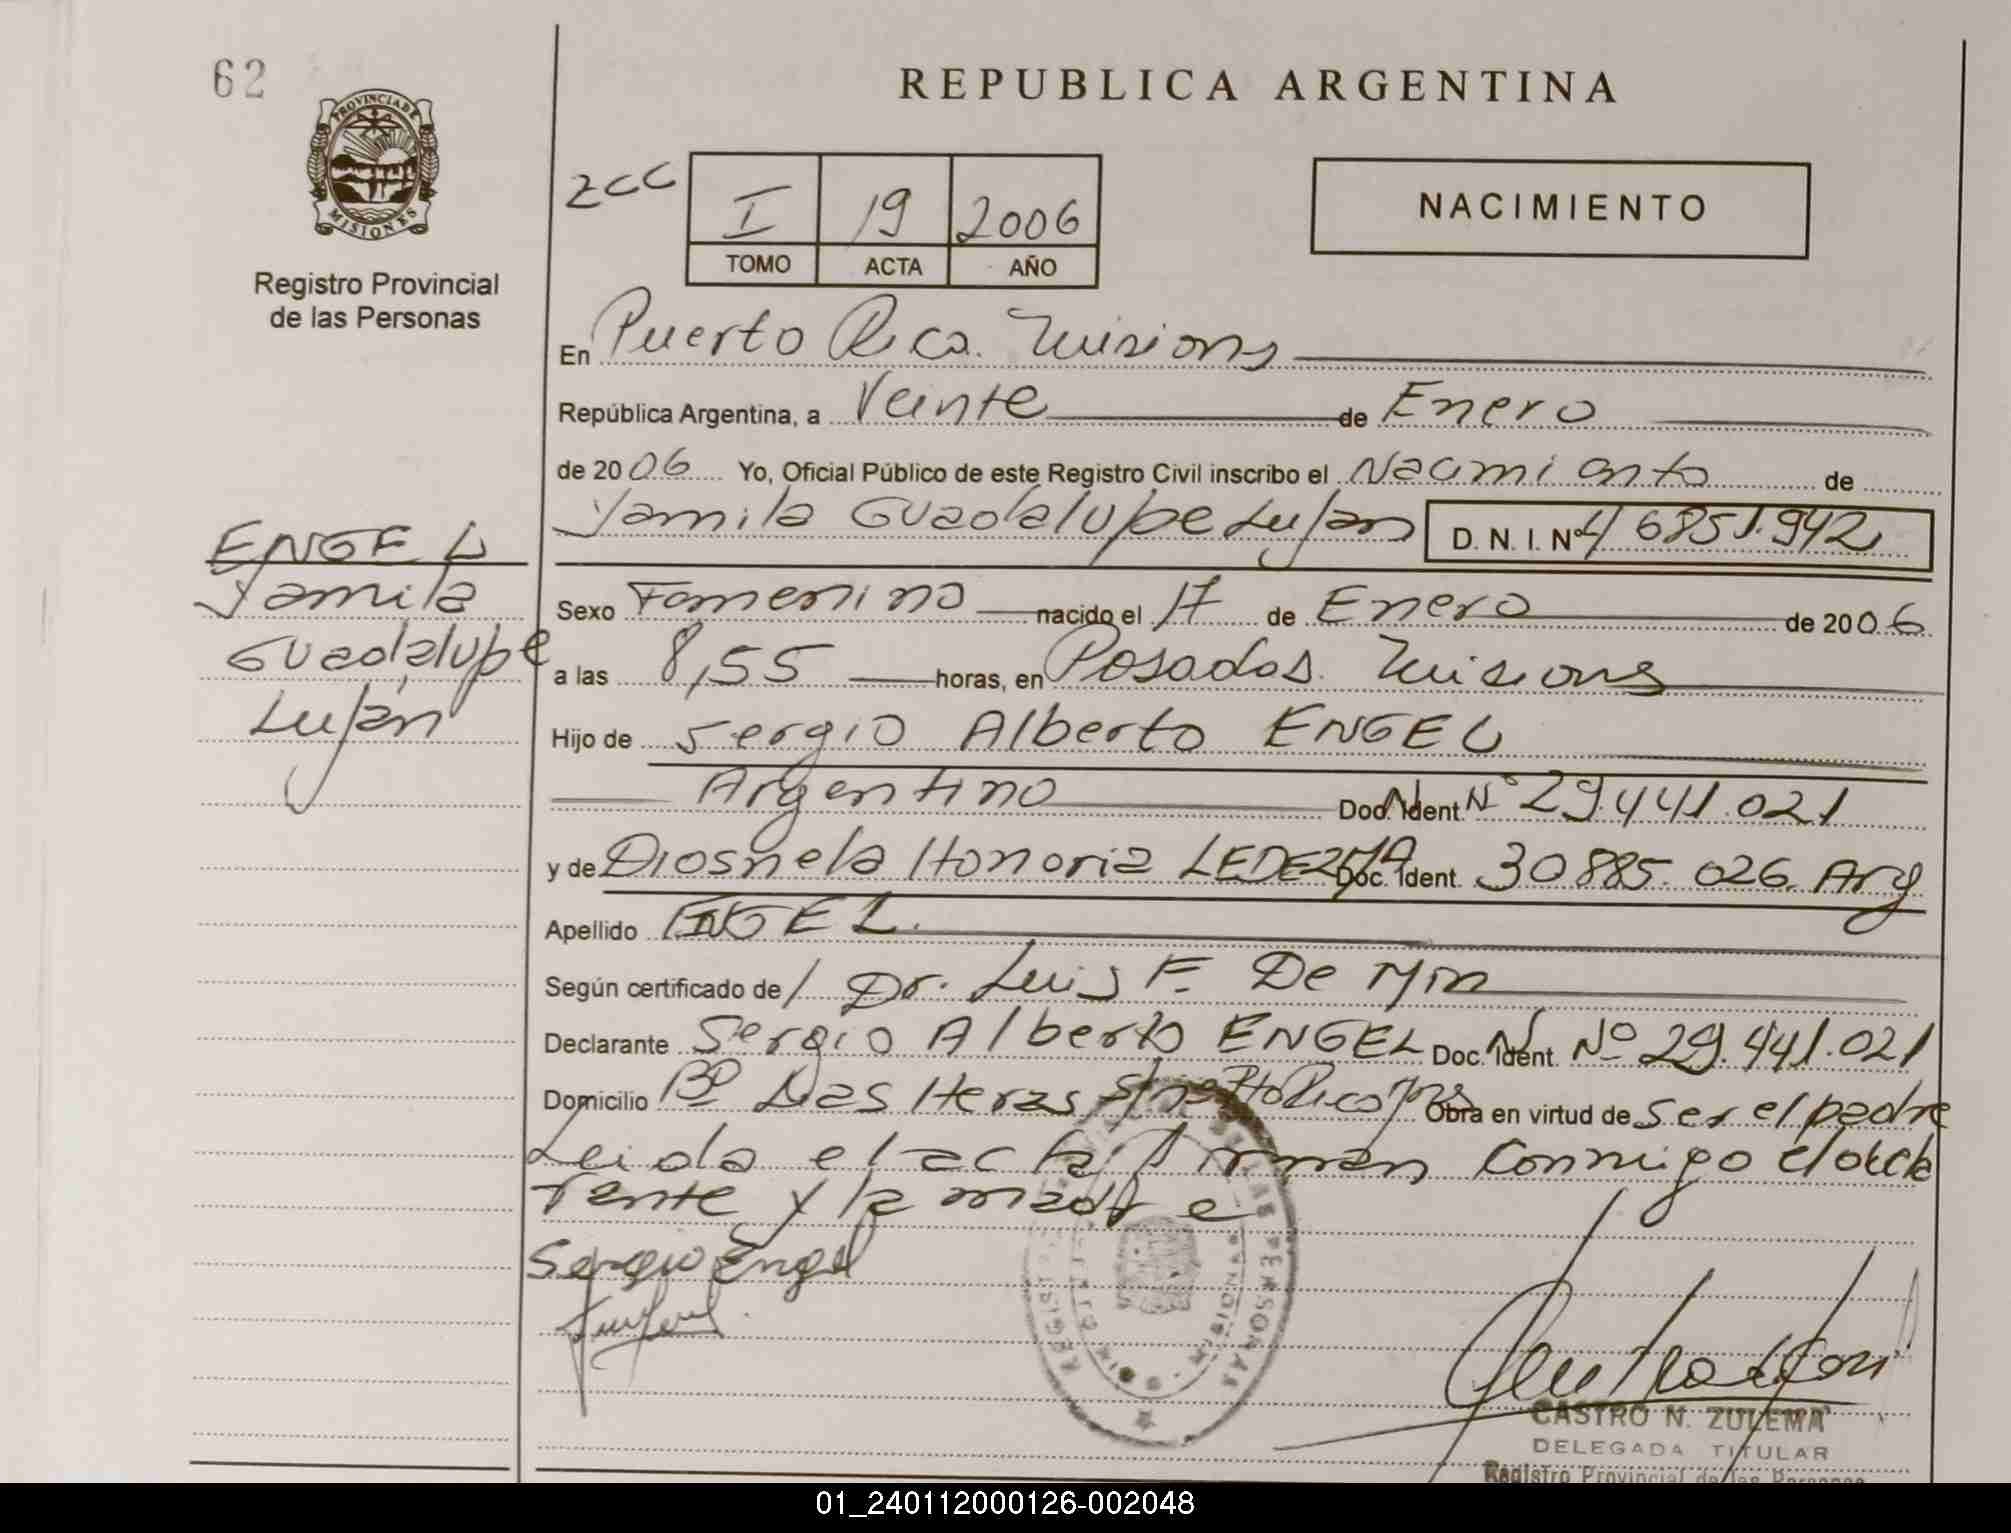 62
REPUBLICA ARGENTINA
PROVINCIA DE
MISIONES
Registro Provincial
de las Personas
zcc
I 19 2006
TOMO ACTA AÑO
NACIMIENTO
En Puerto Rico. Misiones
República Argentina, a Veinte de Enero
de 2006 Yo, Oficial Público de este Registro Civil inscribo el Nacimiento de
Yamila Guadalupe Luján D. N. I. Nº 46851.942
ENGEL
Yamila
Guadalupe
Luján
Sexo Femenino nacido el 17 de Enero de 2006
a las 8,55 horas, en Posadas. Misiones
Hijo de Sergio Alberto ENGEL
Argentino Doc. Ident. Nº 29.441.021
y de Diosnela Honoria LEDEZMA Doc. Ident. 30885.026. Arg
Apellido ENGEL.
Según certificado de / Dr. Luis F. De Min
Declarante Sergio Alberto ENGEL Doc. Ident. Nº 29.441.021
Domicilio Bº Las Heras s/n Pto Rico Mns Obra en virtud de ser el padre
Leida el acta, firman conmigo el decla
rante y la madre
Sergio Engel
CASTRO N. ZULEMA
DELEGADA TITULAR
Registro Provincial de las Personas
01_240112000126-002048